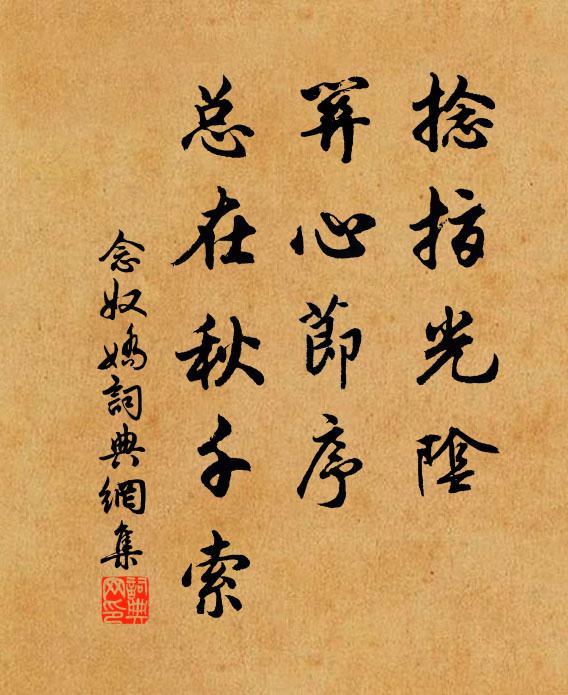 捻指光陰
心節序
总在秋千索
念奴嬌詞典網集
詞典網印